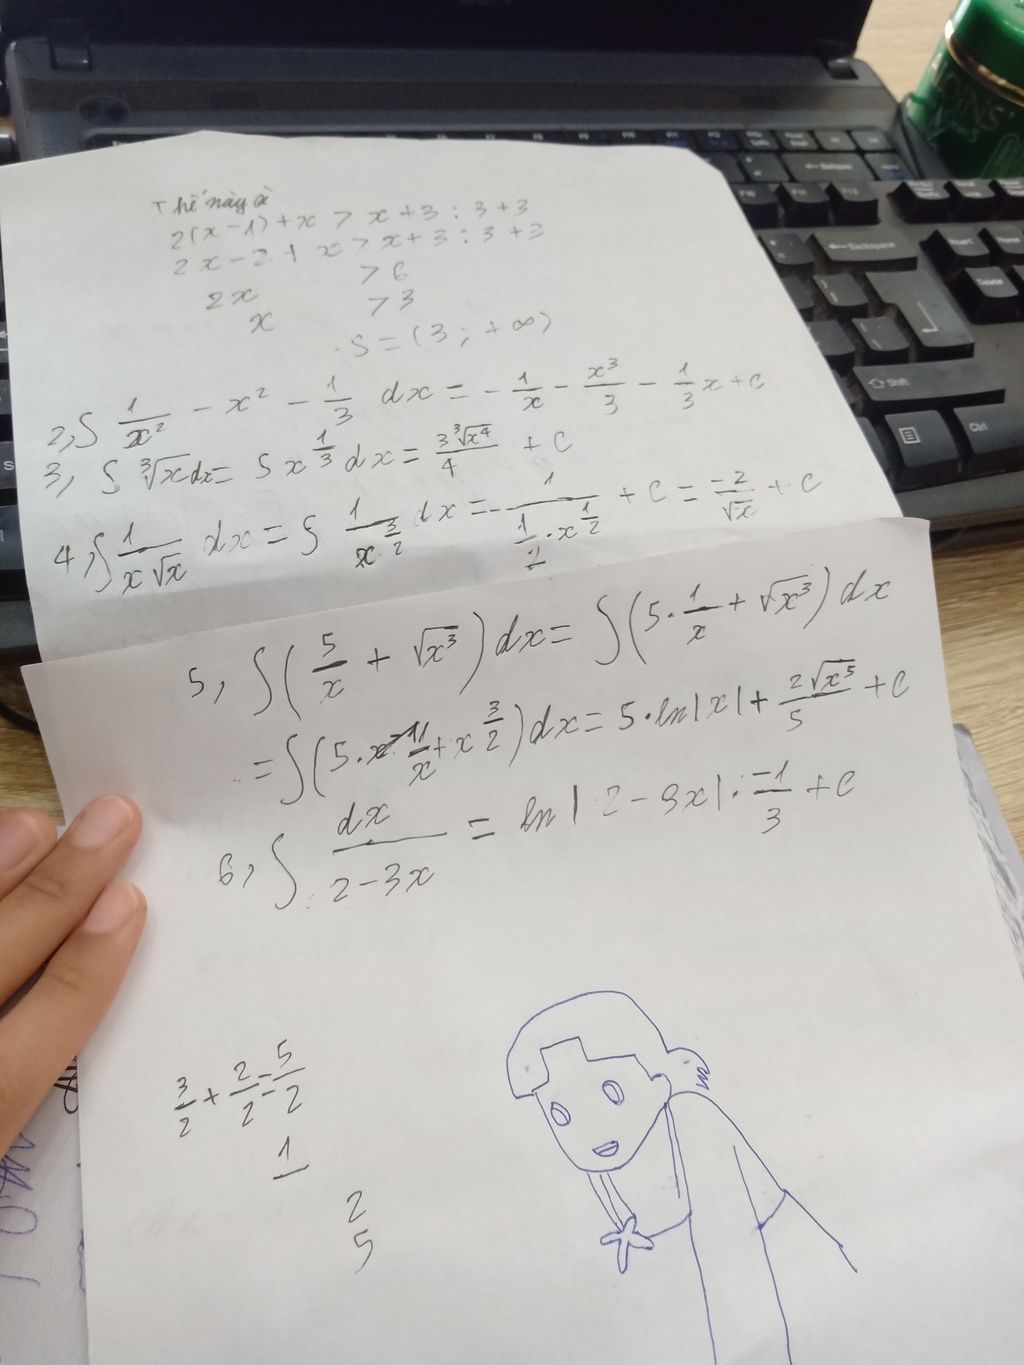 Thế này à
2(x-1)+x > x+3:3+3
2x-2+x > x+3:3+3
2x > 6
x > 3
S=(3;+∞)
2, ∫ 1/x² - x² - 1/3 dx = -1/x - x³/3 - 1/3 x + C
3, ∫ ∛x dx = ∫ x^(1/3) dx = 3∛x⁴/4 + C
4, ∫ 1/(x√x) dx = ∫ 1/x^(3/2) dx = -1/(1/2 · x^(1/2)) + C = -2/√x + C
5, ∫(5/x + √x³)dx = ∫(5·1/x + √x³)dx
= ∫(5·1/x + x^(3/2))dx = 5·ln|x| + 2√x⁵/5 + C
6, ∫ dx/(2-3x) = ln|2-3x|·-1/3 + C
3/2 + 2/2 = 5/2
1
2
5